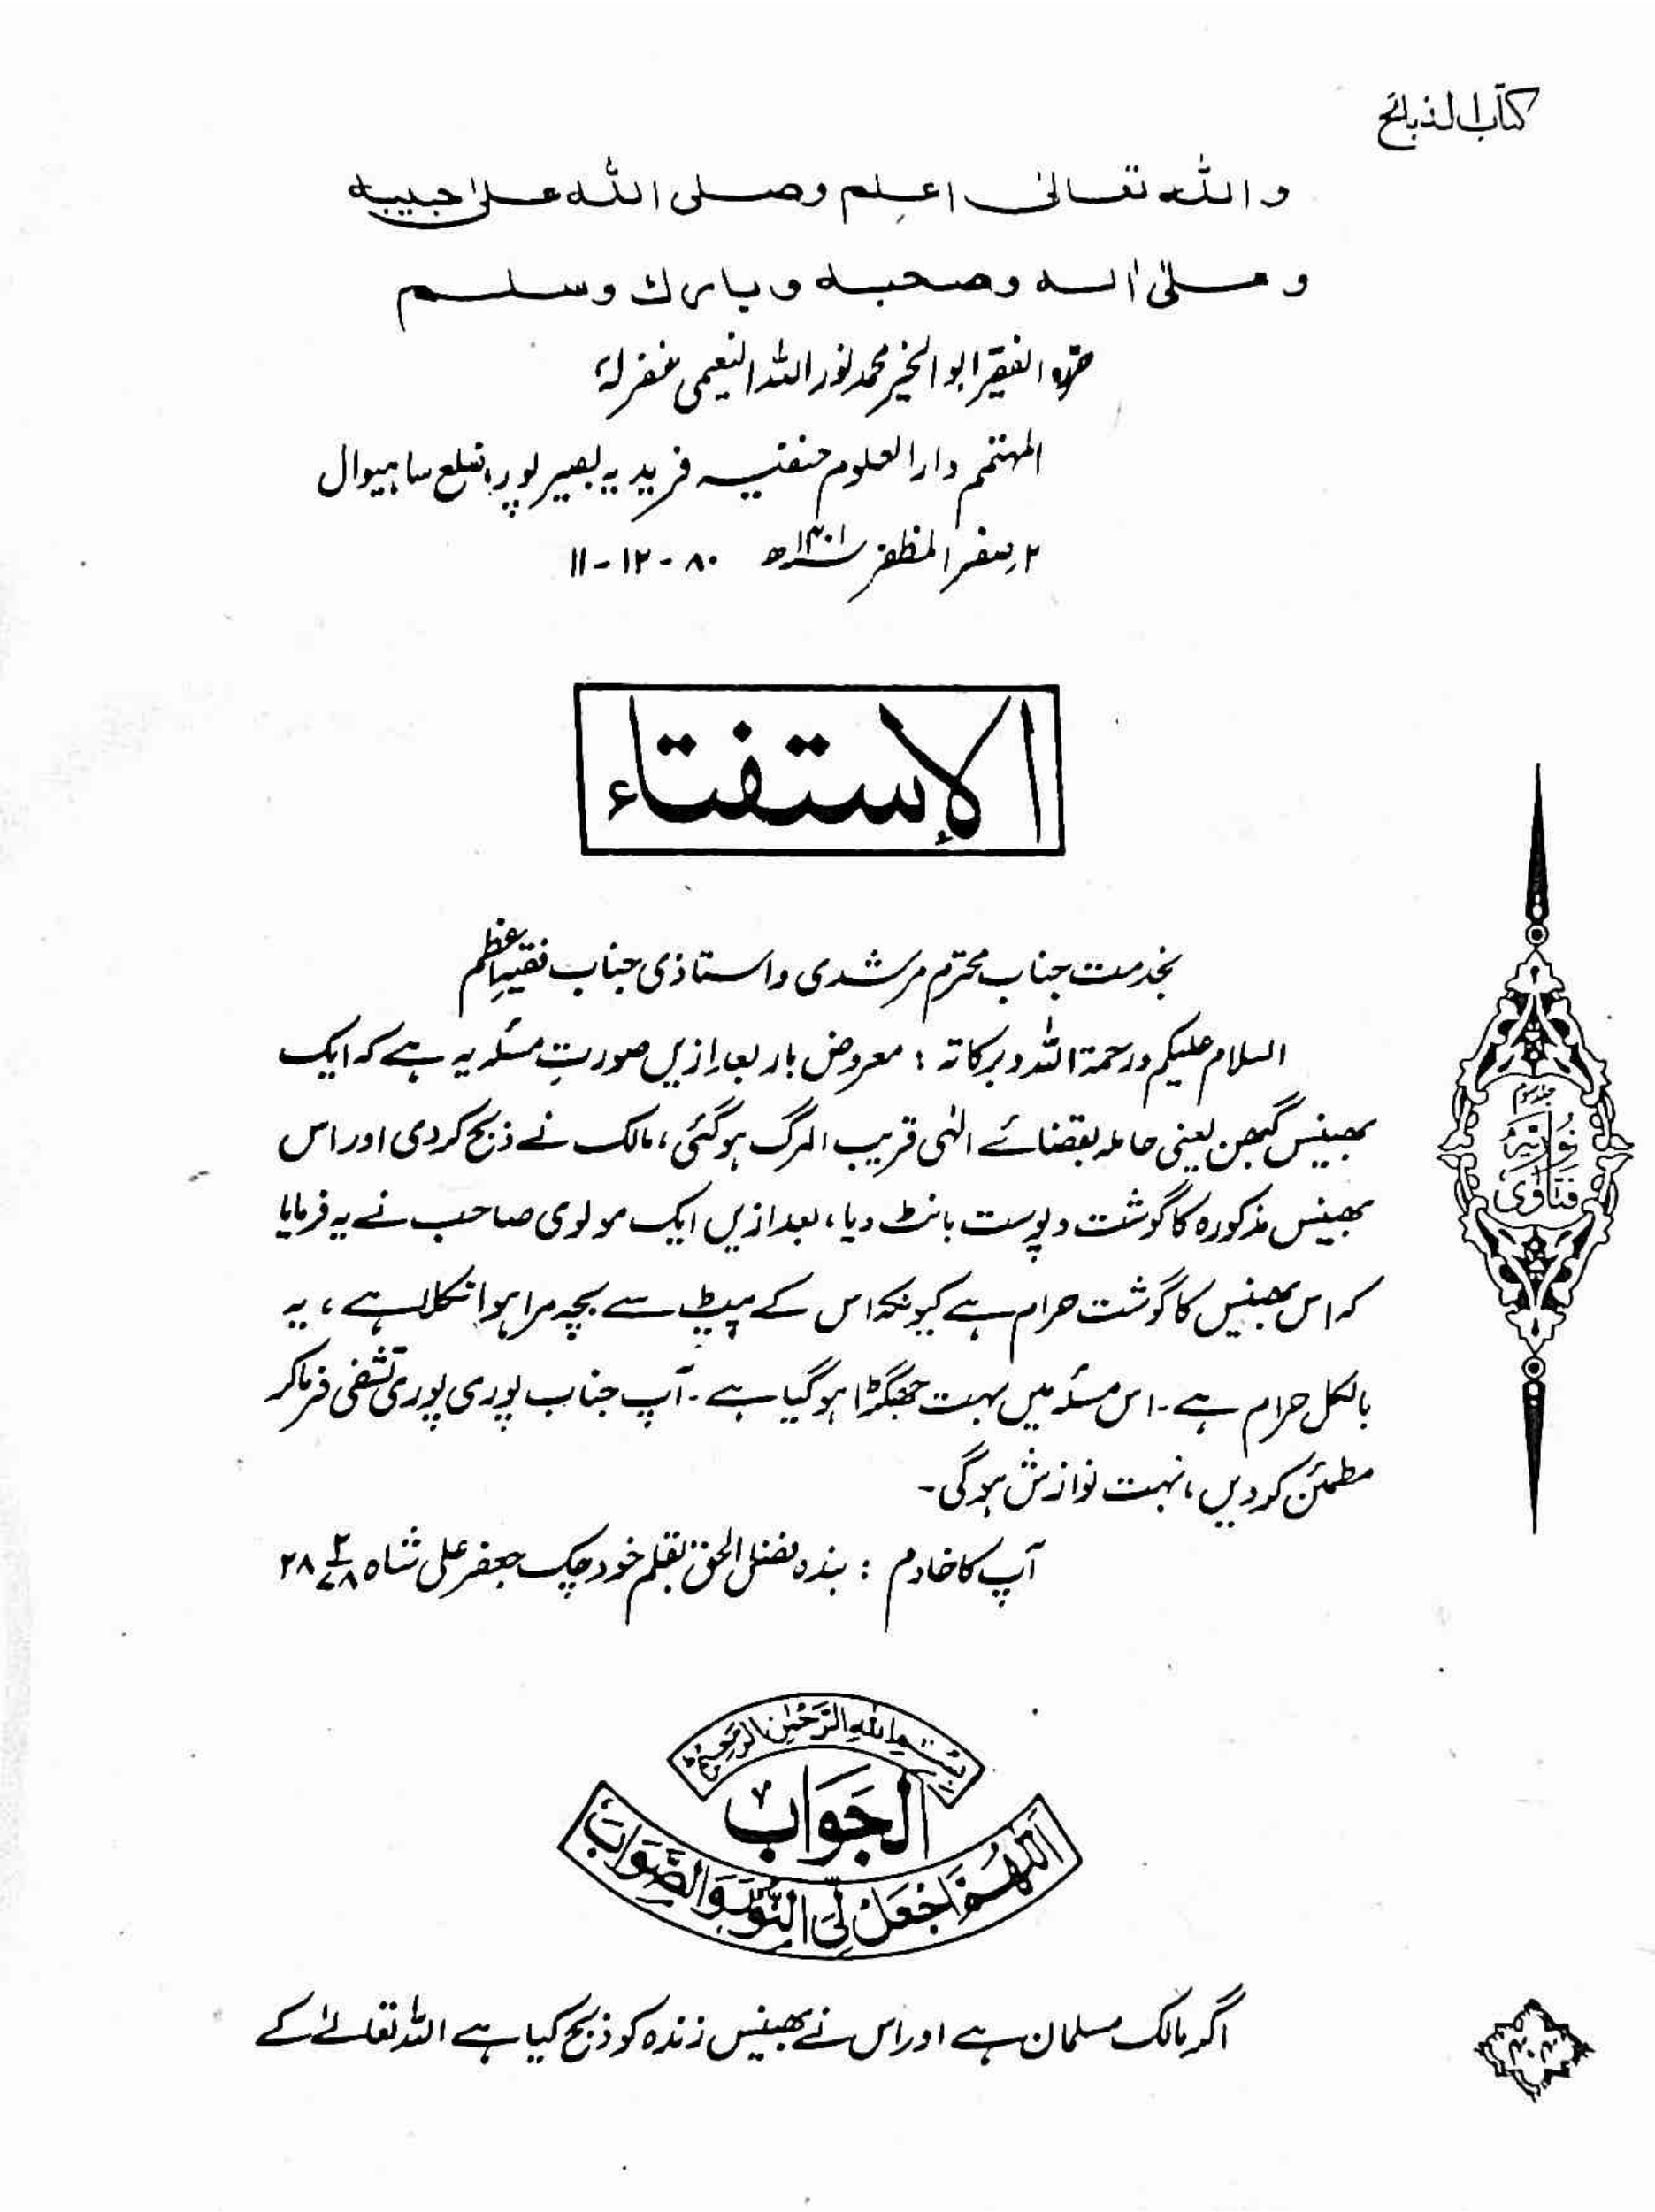 کتاب الذبائح
واللہ تعالیٰ اعلم وصلی اللہ علیٰ حبیبہ
و علیٰ اٰلہ وصحبہ وبارك وسلم
حرّہ الفقیر ابو الخیر محمد نور اللہ النعیمی غفرلہٗ
المہتمم دارالعلوم حنفیہ فریدیہ بصیر پور، ضلع ساہیوال
۲ رصفر المظفر ۱۴۰۱ھ ۸۰-۱۲-۱۱
الإستفتاء
بخدمت جناب محترم مرشدی واستاذی جناب فقیہِ اعظم
السلام علیکم ورحمۃ اللہ وبرکاتہ : معروض بار بعد ازیں صورتِ مسئلہ یہ ہے کہ ایک
بھینس گبھن یعنی حاملہ بقضائے الٰہی قریب المرگ ہوگئی، مالک نے ذبح کردی اور اس
بھینس مذکورہ کا گوشت و پوست بانٹ دیا، بعد ازیں ایک مولوی صاحب نے یہ فرمایا
کہ اس بھینس کا گوشت حرام ہے کیونکہ اس کے پیٹ سے بچہ مرا ہوا نکلا ہے، یہ
بالکل حرام ہے۔ اس مسئلہ میں بہت جھگڑا ہوگیا ہے۔ آپ جناب پوری پوری تشفی فرماکر
مطمئن کردیں، نہایت نوازش ہوگی۔
آپ کا خادم : بندہ فضل الحق بقلم خود چک جعفر علی شاہ
جلد سوم
فتاوٰی نوریہ
بسم اللہ الرحمٰن الرحیم
الجَوَاب
اَللّٰھُمَّ اجْعَلْ لِّیَ النُّوْرَ وَالصَّوَابَ
اگر مالک مسلمان ہے اور اس نے بھینس زندہ کو ذبح کیا ہے اللہ تعالےٰ کے